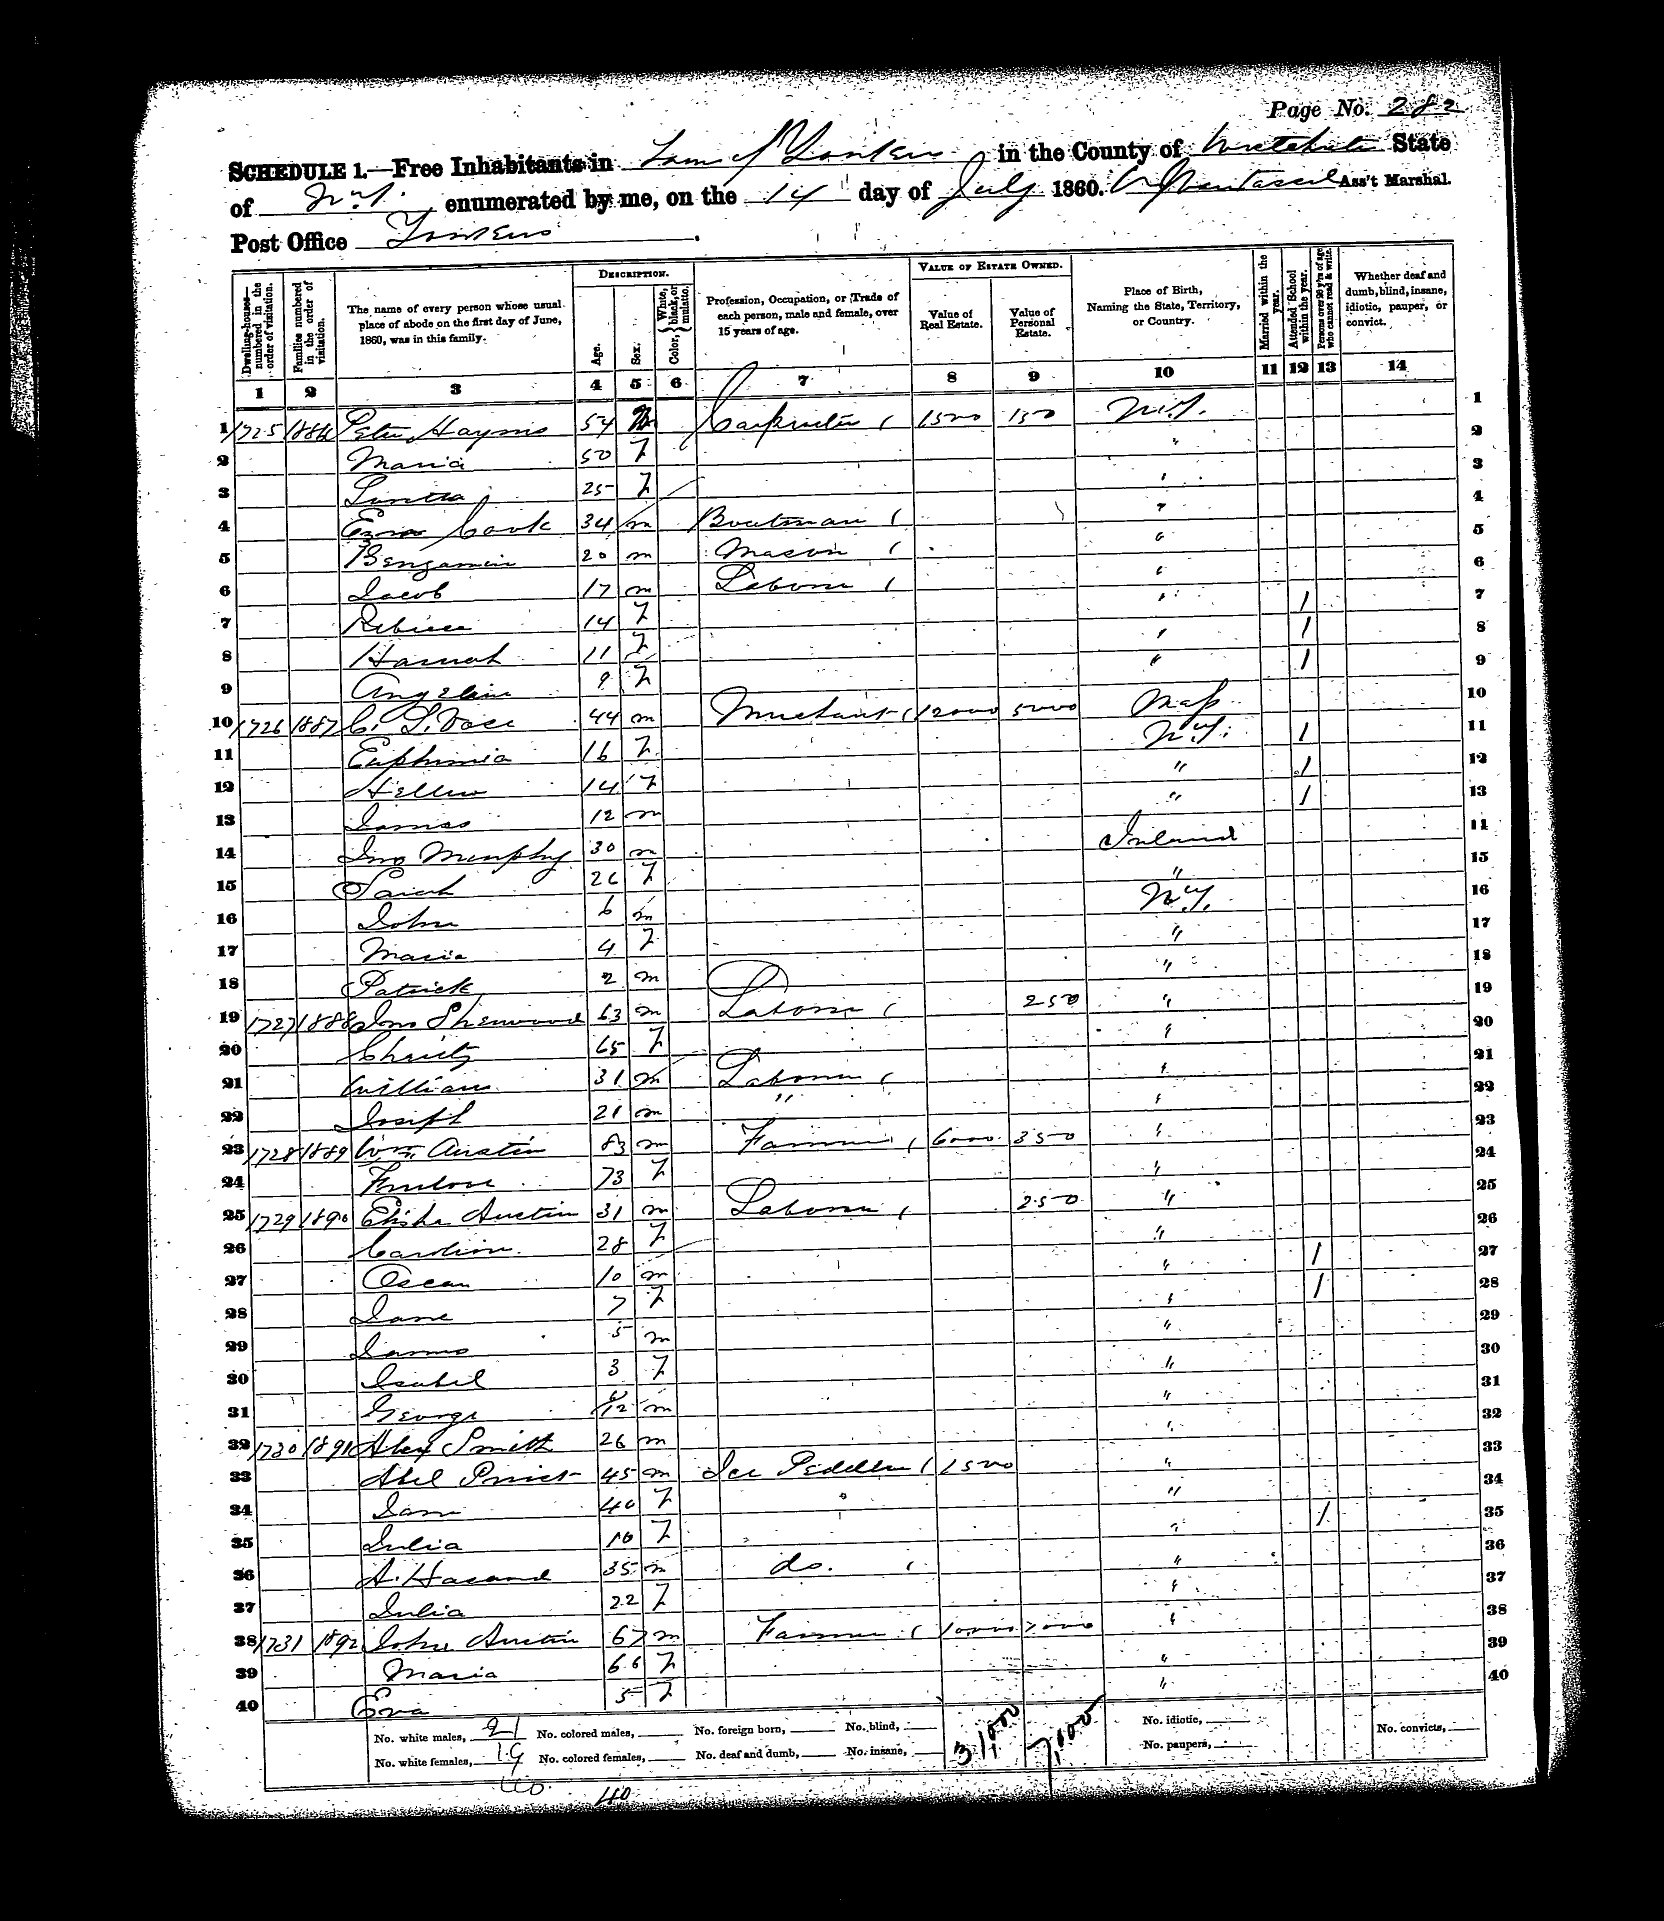 Page No. 282
SCHEDULE 1.—Free Inhabitants in Town of Yonkers in the County of Westchester State
of N.Y. enumerated by me, on the 14 day of July 1860. Ass't Marshal.
Post Office Yonkers
Dwelling-house— numbered in the order of visitation.
Families numbered in the order of visitation.
The name of every person whose usual place of abode on the first day of June, 1860, was in this family.
DESCRIPTION.
Age.
Sex.
Color, White, black, or mulatto.
Profession, Occupation, or Trade of each person, male and female, over 15 years of age.
VALUE OF ESTATE OWNED.
Value of Real Estate.
Value of Personal Estate.
Place of Birth, Naming the State, Territory, or Country.
Married within the year.
Attended School within the year.
Persons over 20 y'rs of age who cannot read & write.
Whether deaf and dumb, blind, insane, idiotic, pauper, or convict.
1 2 3 4 5 6 7 8 9 10 11 12 13 14
1 1725 1886 Peter 54 m Carpenter 1500 150 N.Y. 1
2 Maria 50 F " 2
3 25 F " 3
4 Ezra Cook 34 m Boatman " 4
5 Bengamin 20 m Mason " 5
6 Jacob 17 m Laborer " 6
7 Rebecca 14 F " 1 7
8 Hannah 11 F " 1 8
9 Angeline 9 F " 1 9
10 1726 1887 C. 44 m Merchant 12000 5000 Mass 10
11 Euphemia 16 F N.Y. 1 11
12 Hellen 14 F " 1 12
13 James 12 m " 1 13
14 Jno Murphy 30 m Ireland 11
15 Sarah 26 F " 15
16 John 6 m N.Y. 16
17 Maria 4 F " 17
18 Patrick 2 m " 18
19 1727 1888 Jno Sherwood 63 m Laborer 250 " 19
20 Charity 65 F " 20
21 William 31 m Laborer " 21
22 Joseph 21 m " " 22
23 1728 1889 Wm Austin 83 m Farmer 6000 350 " 23
24 73 F " 24
25 1729 1890 Elisha Austin 31 m Laborer 250 " 25
26 Caroline 28 F " 26
27 Oscar 10 m " 1 27
28 Jane 7 F " 1 28
29 James 5 m " 29
30 Isabel 3 F " 30
31 George 6/12 m " 31
32 1730 1891 Alex Smith 26 m " 32
33 Abel Priest 45 m Ice Peddler 1500 " 33
34 Jane 40 F " 34
35 Julia 10 F " 1 35
36 A. 35 m do. " 36
37 Julia 22 F " 37
38 1731 1892 John Austin 67 m Farmer 10000 1000 " 38
39 Maria 66 F " 39
40 Eva 5 F " 40
No. white males, 21 No. colored males, No. foreign born, No. blind, 31,000 7,000 No. idiotic, No. convicts,
No. white females, 19 No. colored females, No. deaf and dumb, No. insane, No. paupers,
40 40